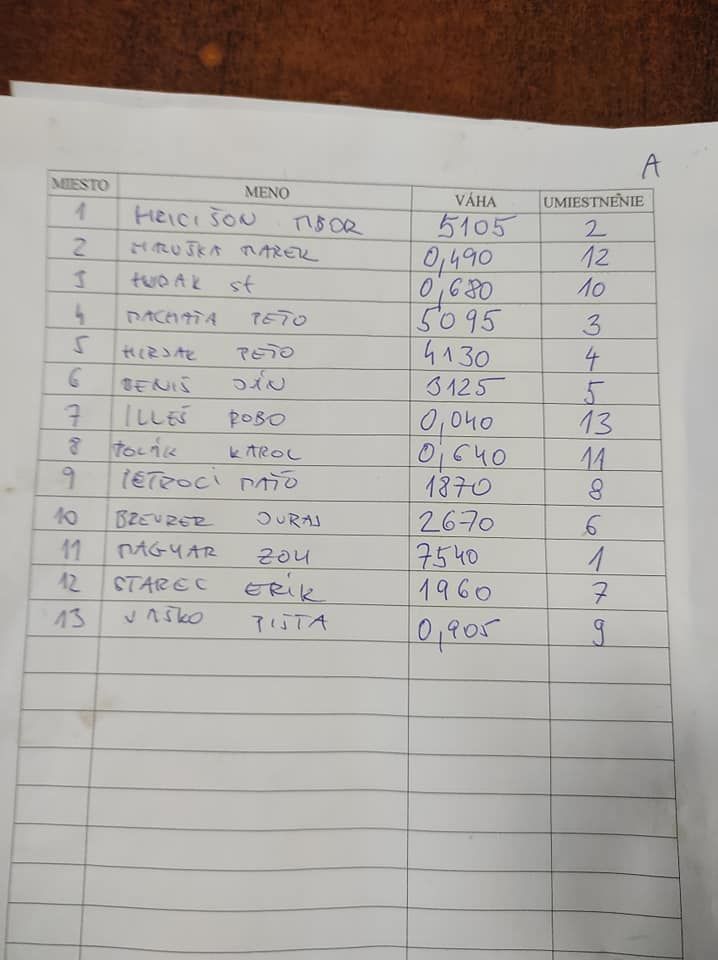 A
MIESTO MENO VÁHA UMIESTNENIE
1 HRICIŠON TIBOR 5105 2
2 HRUŠKA MAREK 0,490 12
3 HUDAK st 0,680 10
4 MACHAŤA PEŤO 5095 3
5 HIRJAK PEŤO 4130 4
6 BENIŠ JÁN 3125 5
7 ILLEŠ ROBO 0,040 13
8 POLÁK KAROL 0,640 11
9 PETROCI MAŤO 1870 8
10 BREURER JURAJ 2670 6
11 MAGYAR ZOLI 7540 1
12 STAREC ERIK 1960 7
13 VAŠKO PIŠTA 0,905 9